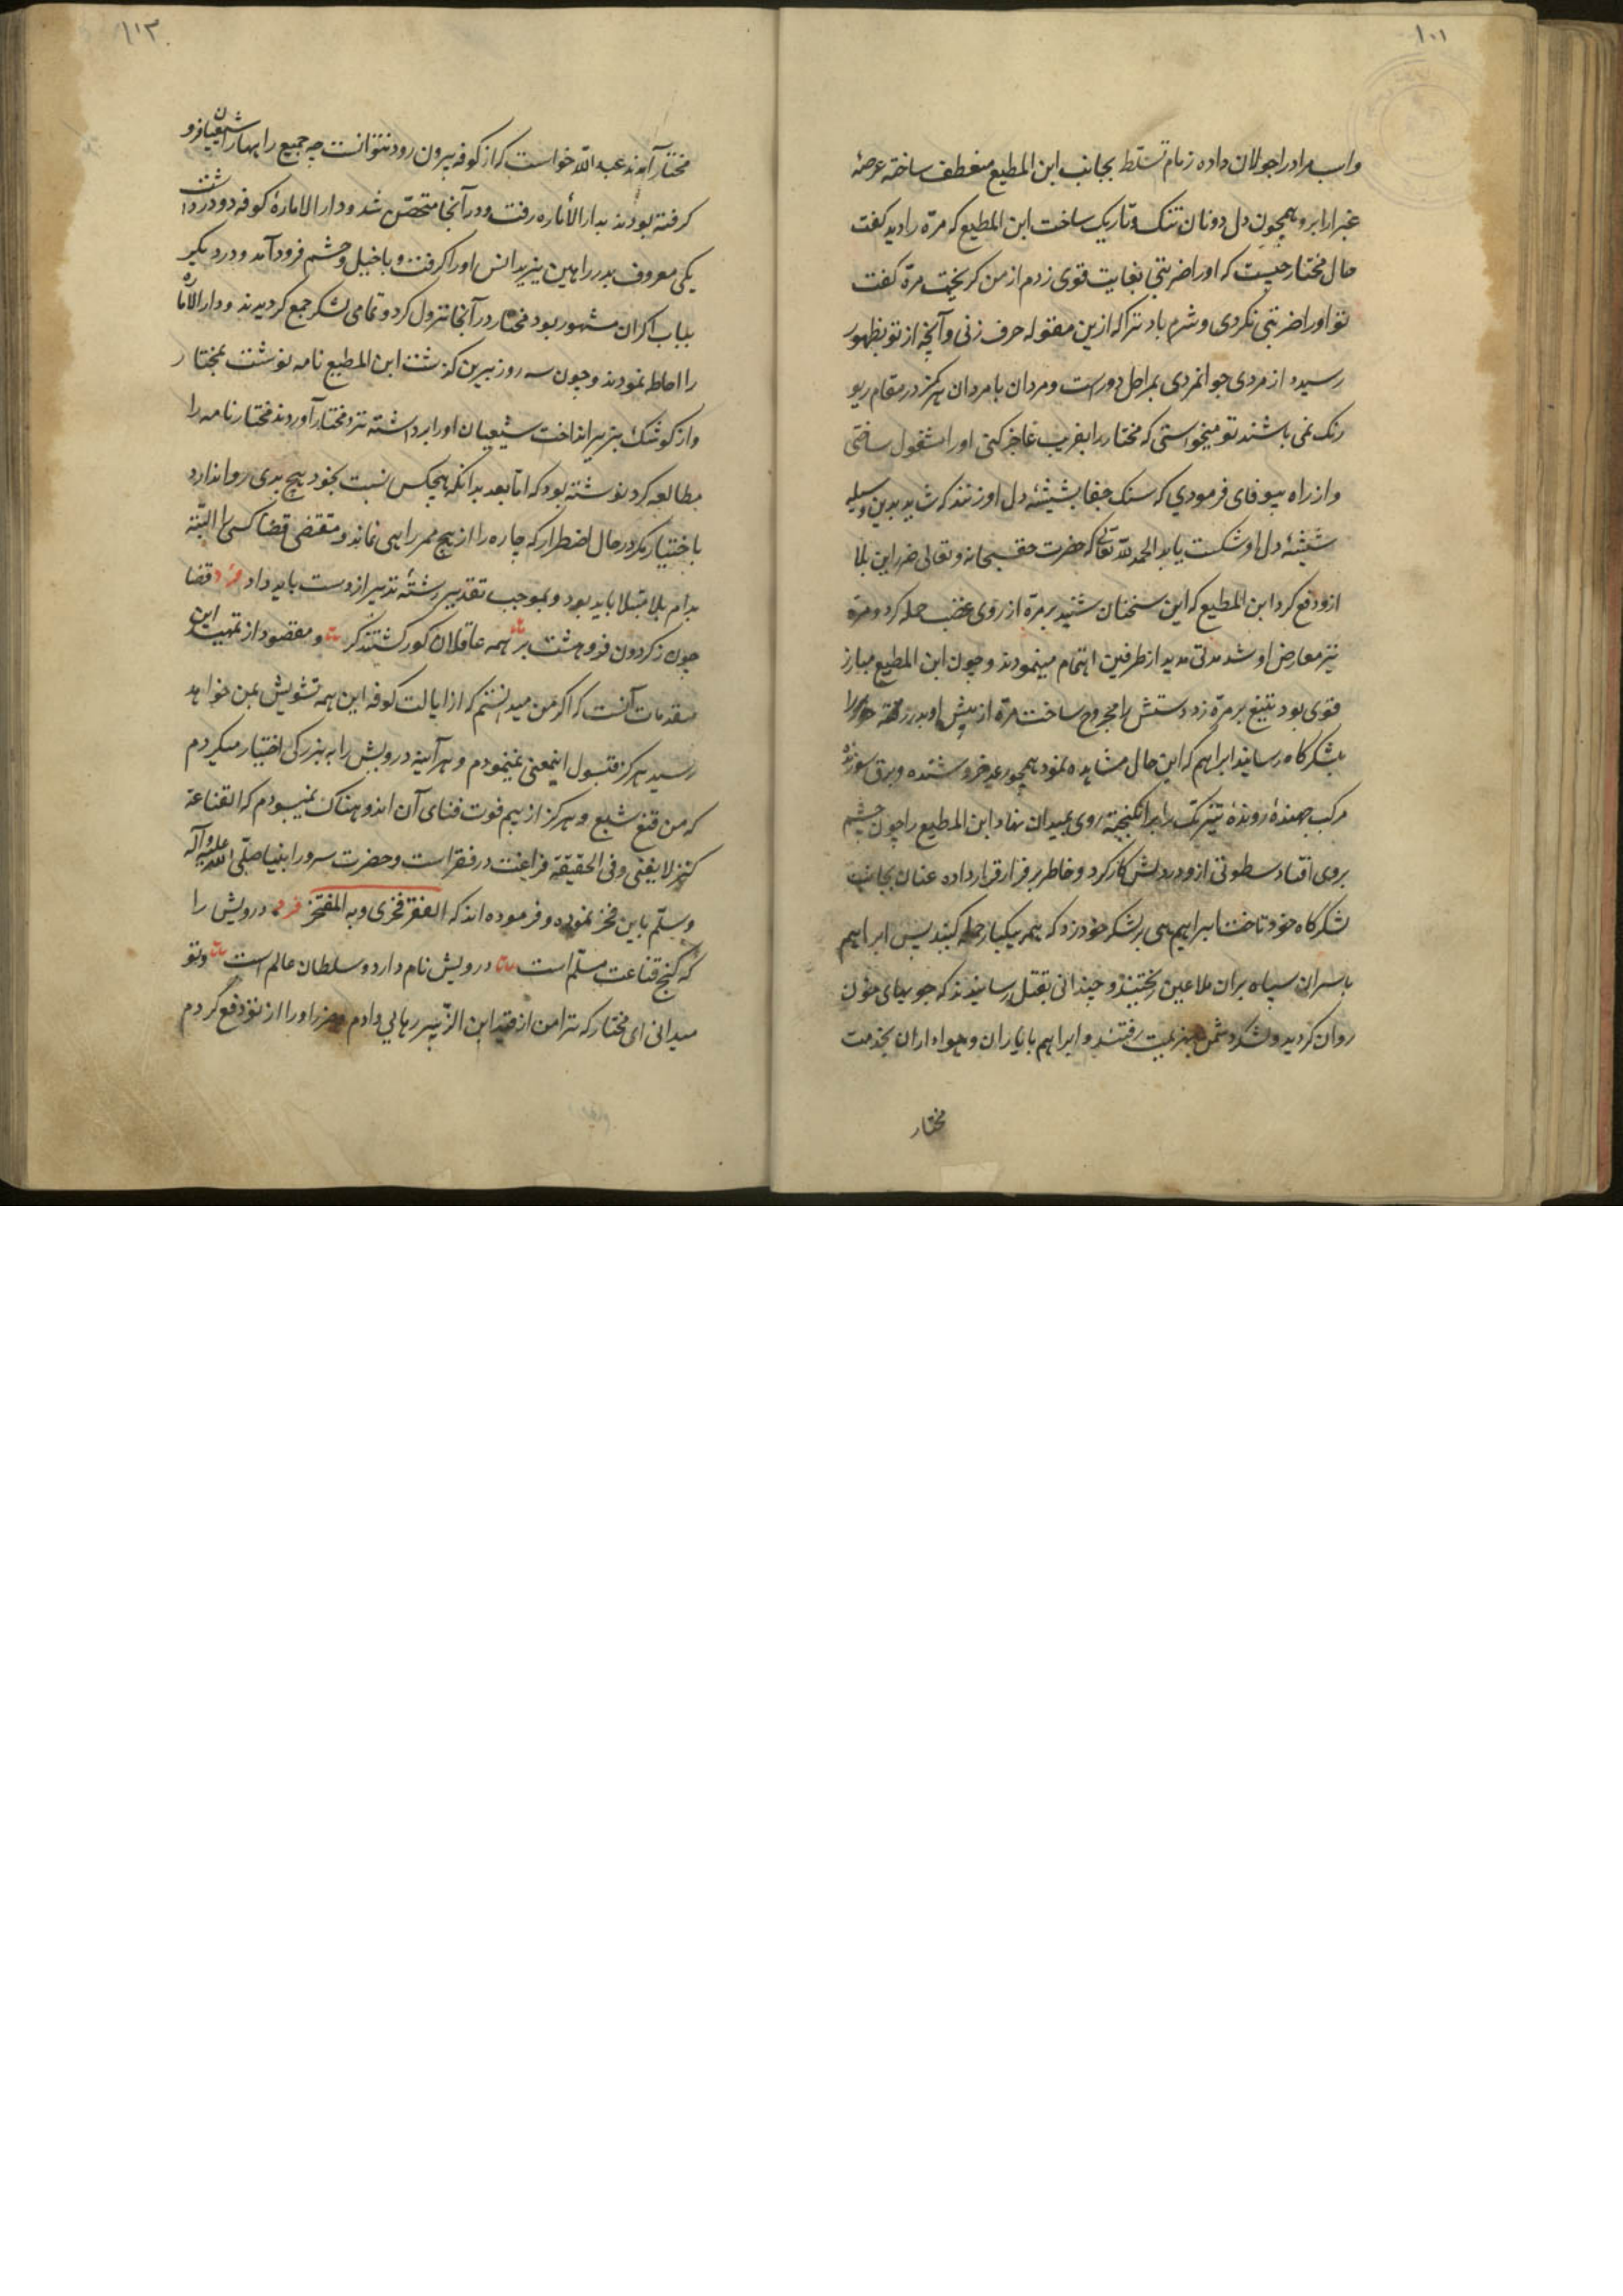 ۱۰۱
واسب مراد را جولان داده زمام تسلط بجانب ابن المطیع منعطف ساخته عرصهٔ
غبرا را برو همچون دل دونان تنک و تاریک ساخت ابن المطیع که مرّه را دید کفت
حال مختار چیست که او را ضربتی بغایت قوی زدم از من کریخت مرّه کفت
تو او را ضربتی نکردی و شرم باد ترا که ازین مقوله حرف زنی و آنچه از تو بظهور
رسیده از مردی جوانمردی بمراحل دورست و مردان با مردان هرکز در مقام ریو
رنک نمی باشند تو میخواستی که مختار را بفریب عاجز کنی او را مشغول ساختی
و از راه بیوفای فرمودی که سنک جفا بشیشهٔ دل او زنند که شاید بدین وسیله
شیشهٔ دل او شکست یابد الحمد لله تعالی که حضرت حق سبحانه و تعالی ضرر این بلا
ازو دفع کرد ابن المطیع که این سخنان شنید بر مرّه از روی غضب حمله کرد و مرّه
نیز معارض او شد مدتی مدید از طرفین اهتمام مینمودند و چون ابن المطیع مبارز
قوی بود بتیغ بر مرّه زد دستش را مجروح ساخت مرّه از پیش او بدر رفته خود را
بلشکرکاه رسانید ابراهیم که این حال مشاهده نمود همچو رعد خروشنده و برق سوزنده
مرکب جهندهٔ روندهٔ تیز تک را برانکیخته روی بمیدان نهاد ابن المطیع را چون چشم
بروی افتاد سطوتی ازو در دلش کار کرد و خاطر بر فرار قرار داده عنان بجانب
لشکرکاه خود تاخت ابراهیم هی بر لشکر خود زد که همه بیکبار حمله کنید پس ابراهیم
با سران سپاه بران ملاعین ریختند و چندانی بقتل رسانیدند که جویهای خون
روان کردید و لشکر دشمن بهزیمت رفتند و ابراهیم با یاران و هواداران بخدمت
مختار
۱۱۳
مختار آمدند عبد الله خواست که از کوفه بیرون رود نتوانست چه جمیع راهها را شیعیان فرو
کرفته بودند بدار الأماره رفت و در آنجا متحصّن شد و دار الامارهٔ کوفه دو در داشت
یکی معروف بدر راهبین یزید انس او را کرفت و با خیل و حشم فرود آمد و در دیکر
بباب اکران مشهور بود مختار در آنجا نزول کرد و تمامی لشکر جمع کردیدند و دار الاماره
را احاطه نمودند و چون سه روز برین کذشت ابن المطیع نامه نوشت بمختار
و از کوشک بزیر انداخت شیعیان او را برداشته نزد مختار آوردند مختار نامه را
مطالعه کرد نوشته بود که اما بعد بدانکه هیچکس نسبت بخود هیچ بدی روا ندارد
باختیار مکر در حال اضطرار که چاره را از هیچ ممر راهی نماند و مقتضی قضا کسی را البته
بدام بلا مبتلا باید بود و بموجب تقدیر رشتهٔ تدبیر از دست باید داد فرد قضا
چون ز کردون فرو هشت پر همه عاقلان کور کشتند و کر و مقصود از تمهید این
مقدمات آنست که اکر من میدانستم که از ایالت کوفه این همه تشویش بمن خواهد
رسید هرکز قبول اینمعنی نمینمودم و هر آینه درویش را به بزرکی اختیار میکردم
که من قنع شبع و هرکز از بیم فوت فنای آن اندوهناک نمیبودم که القناعة
کنز لا یفنی و فی الحقیقة فراغت در فقر است و حضرت سرور انبیا صلّی الله علیه و آله
وسلّم باین فخر نموده و فرموده اند که الفقر فخری و به افتخر فرد درویش را
که کنج قناعت مسلّم است درویش نام دارد و سلطان عالم است و تو
میدانی ای مختار که ترا من از قید ابن الزبیر رهایی دادم و ضرر او را از تو دفع کردم